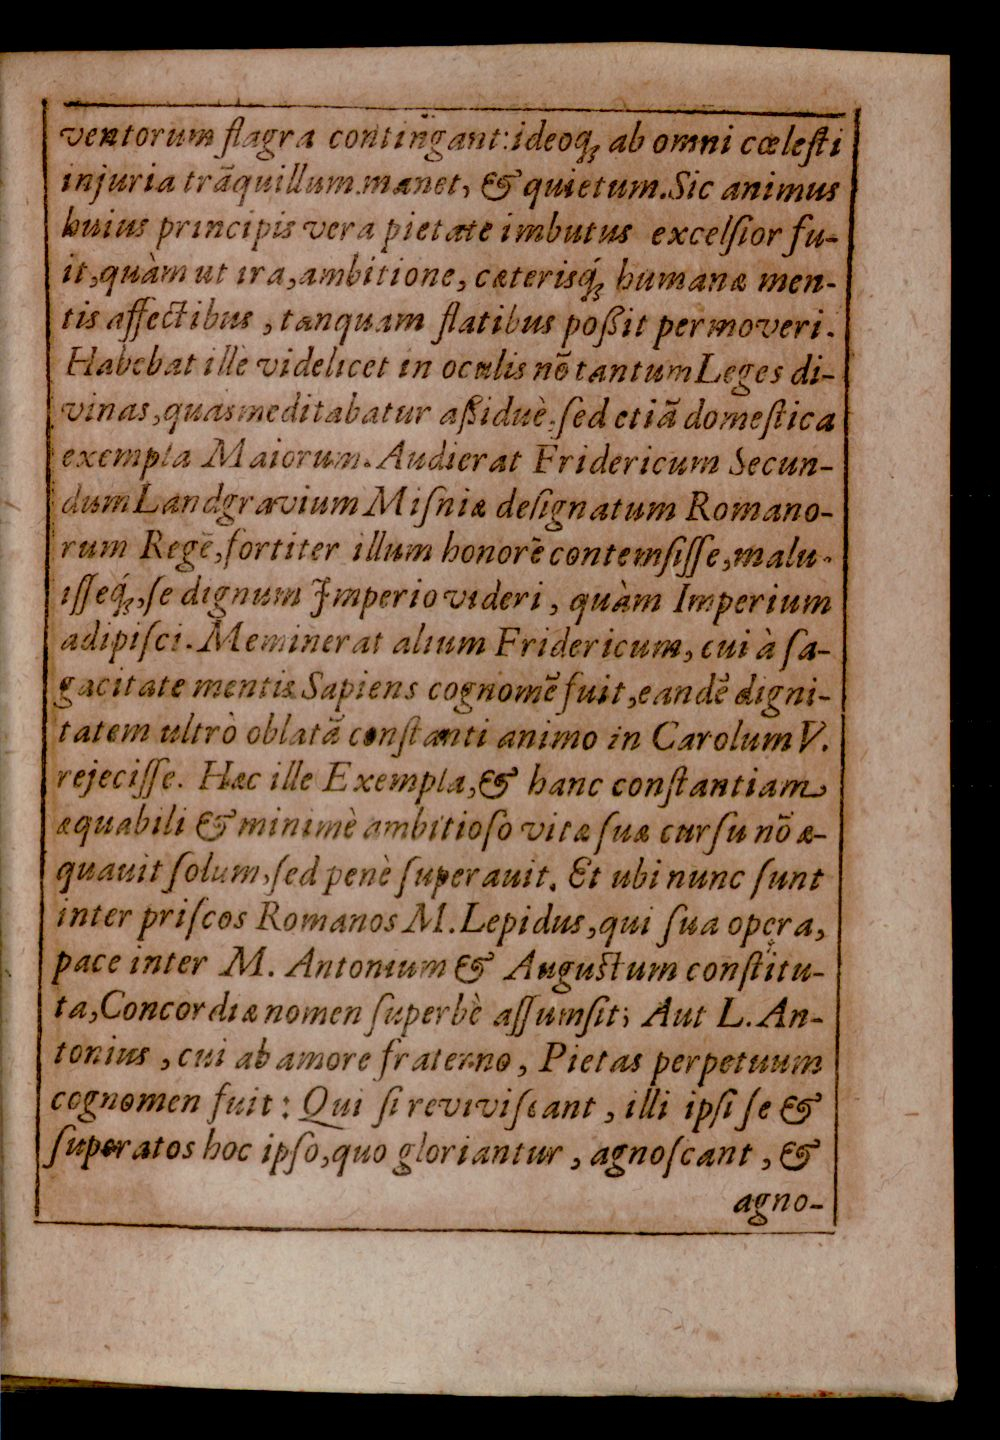 ventorum flagra contingant: ideoq́ꝫ ab omni cœleſti
injuria trãquillum manet, & quietum. Sic animus
huius principis vera pietate imbutus excelſior fu-
it, quàm ut ira, ambitione, cæterisq́ꝫ humanæ men-
tis affectibus, tanquam flatibus poßit permoveri.
Habebat ille videlicet in oculis nõ tantum Leges di-
vinas, quas meditabatur aßiduè, ſed etiã domeſtica
exempla Maiorum. Audierat Fridericum Secun-
dum Landgravium Miſniæ deſignatum Romano-
rum Regẽ, fortiter illum honorẽ contemſiſſe, malu-
iſſeq́ꝫ, ſe dignum Imperio videri, quàm Imperium
adipiſci. Meminerat alium Fridericum, cui à ſa-
gacitate mentis Sapiens cognomẽ fuit, eandẽ digni-
tatem ultrò oblatã conſtanti animo in Carolum V.
rejeciſſe. Hæc ille Exempla, & hanc conſtantiam
æquabili & minimè ambitioſo vitæ ſuæ curſu nõ æ-
quavit ſolum, ſed penè ſuperavit. Et ubi nunc ſunt
inter priſcos Romanos M. Lepidus, qui ſua opera,
pace inter M. Antonium & Auguſtum conſtitu-
ta, Concordiæ nomen ſuperbè aſſumſit; Aut L. An-
tonius, cui ab amore fraterno, Pietas perpetuum
cognomen fuit: Qui ſi reviviſcant, illi ipſi ſe &
ſuperatos hoc ipſo, quo gloriantur, agnoſcant, &
agno-